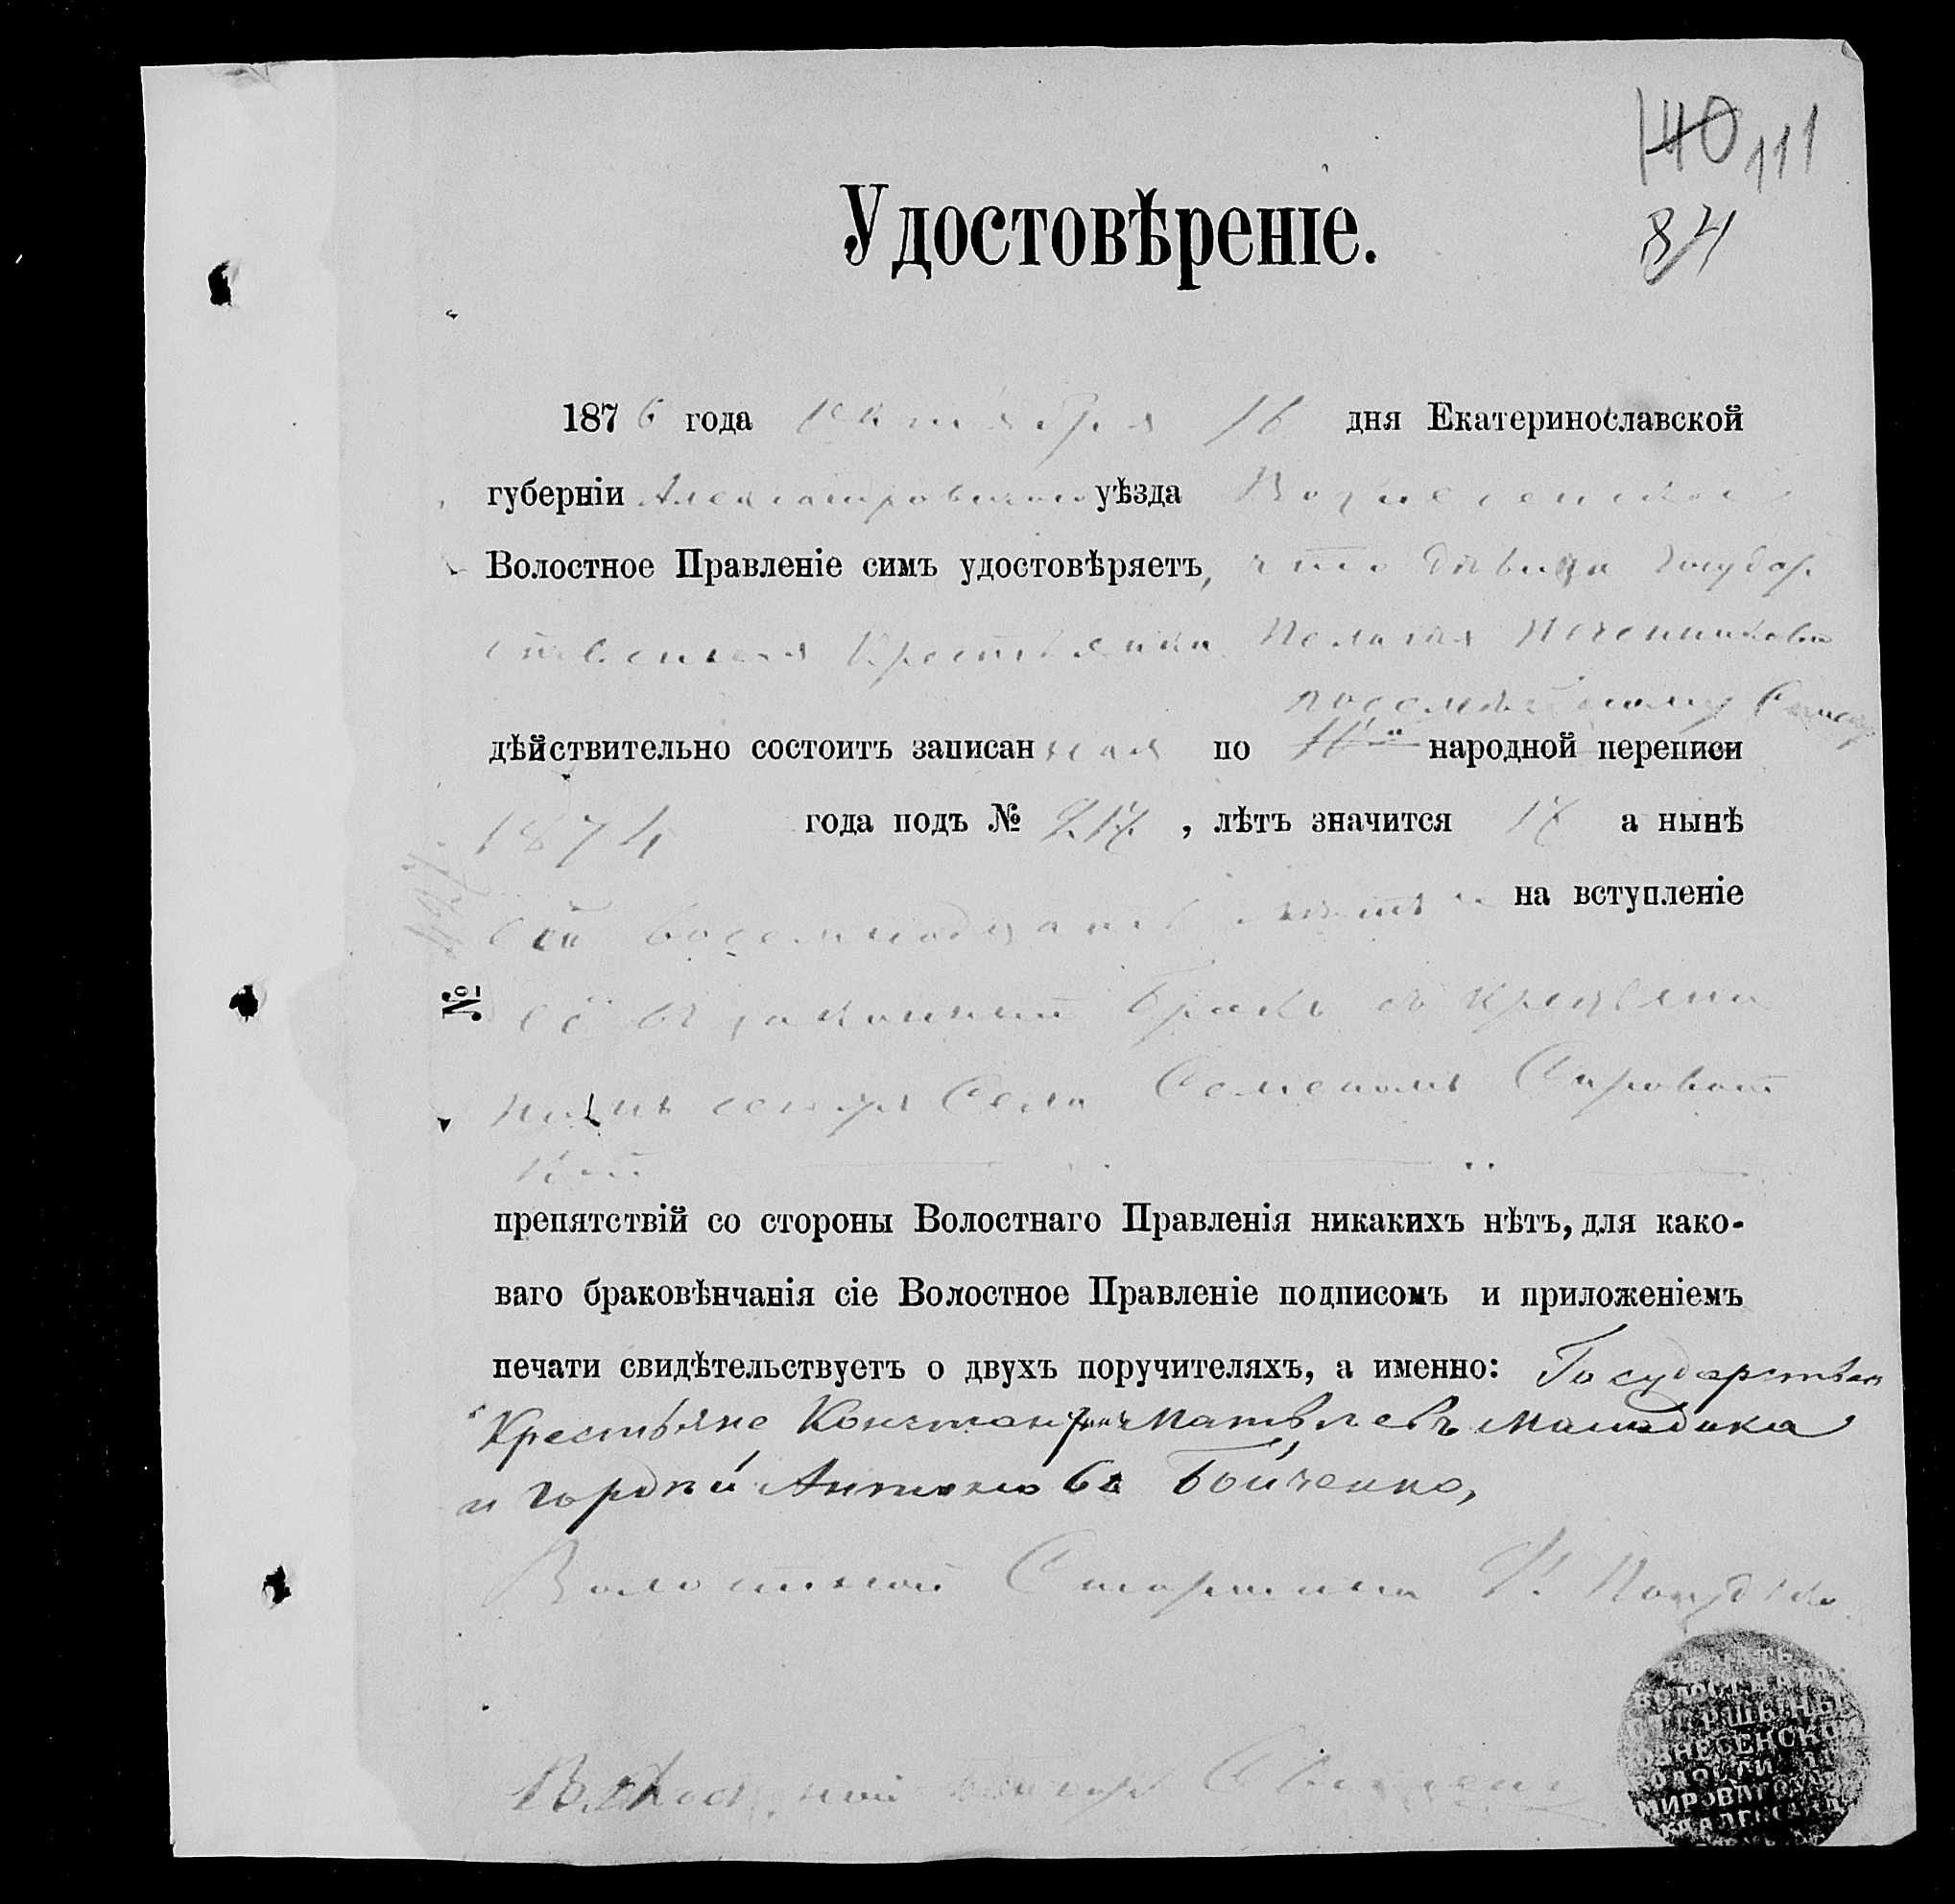 140 111
84
Удостовѣреніе.
1876 года Октября 16 дня Екатеринославской
губерніи Александровскаго уѣзда Вознесенское
Волостное Правленіе симъ удостовѣряетъ, что дѣвица Государ
ственная Крестьянка Пелагія
посемейному Списку
дѣйствительно состоитъ записанная по 10й народной переписи
1874 года подъ № 217, лѣтъ значится 17 а нынѣ
ей восемнадцать лѣтъ и на вступленіе
№
её въ законный бракъ съ крестьяни
номъ сего же Села Семеномъ Сыроват
кой
препятствій со стороны Волостнаго Правленія никакихъ нѣтъ, для како-
ваго браковѣнчанія сіе Волостное Правленіе подписомъ и приложеніемъ
печати свидѣтельствуетъ о двухъ поручителяхъ, а именно: Государствен
Крестьяне Матвѣевъ
и Гордѣй Бойченко,
Волостной Старшина
Волостной Писарь
ПЕЧАТЬ
ВОЛОСТНАГО
СТАРШИНЫ
ВОЗНЕСЕНСКОЙ
ВОЛОСТИ